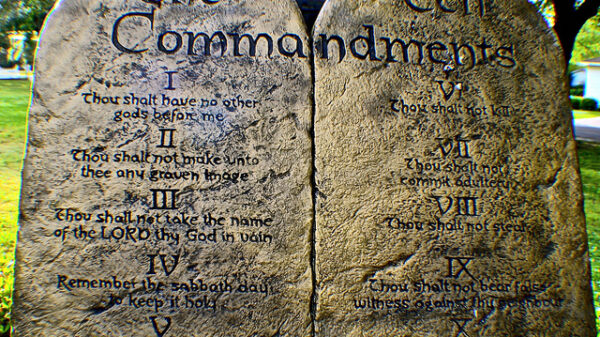 The Ten
Commandments
I
Thou shalt have no other
gods before me
II
Thou shalt not make unto
thee any graven image
III
Thou shalt not take the name
of the LORD thy God in vain
IV
Remember the sabbath day,
to keep it holy
V
VI
Thou shalt not kill
VII
Thou shalt not
commit adultery
VIII
Thou shalt not steal
IX
Thou shalt not bear false
witness against thy neighbour
X